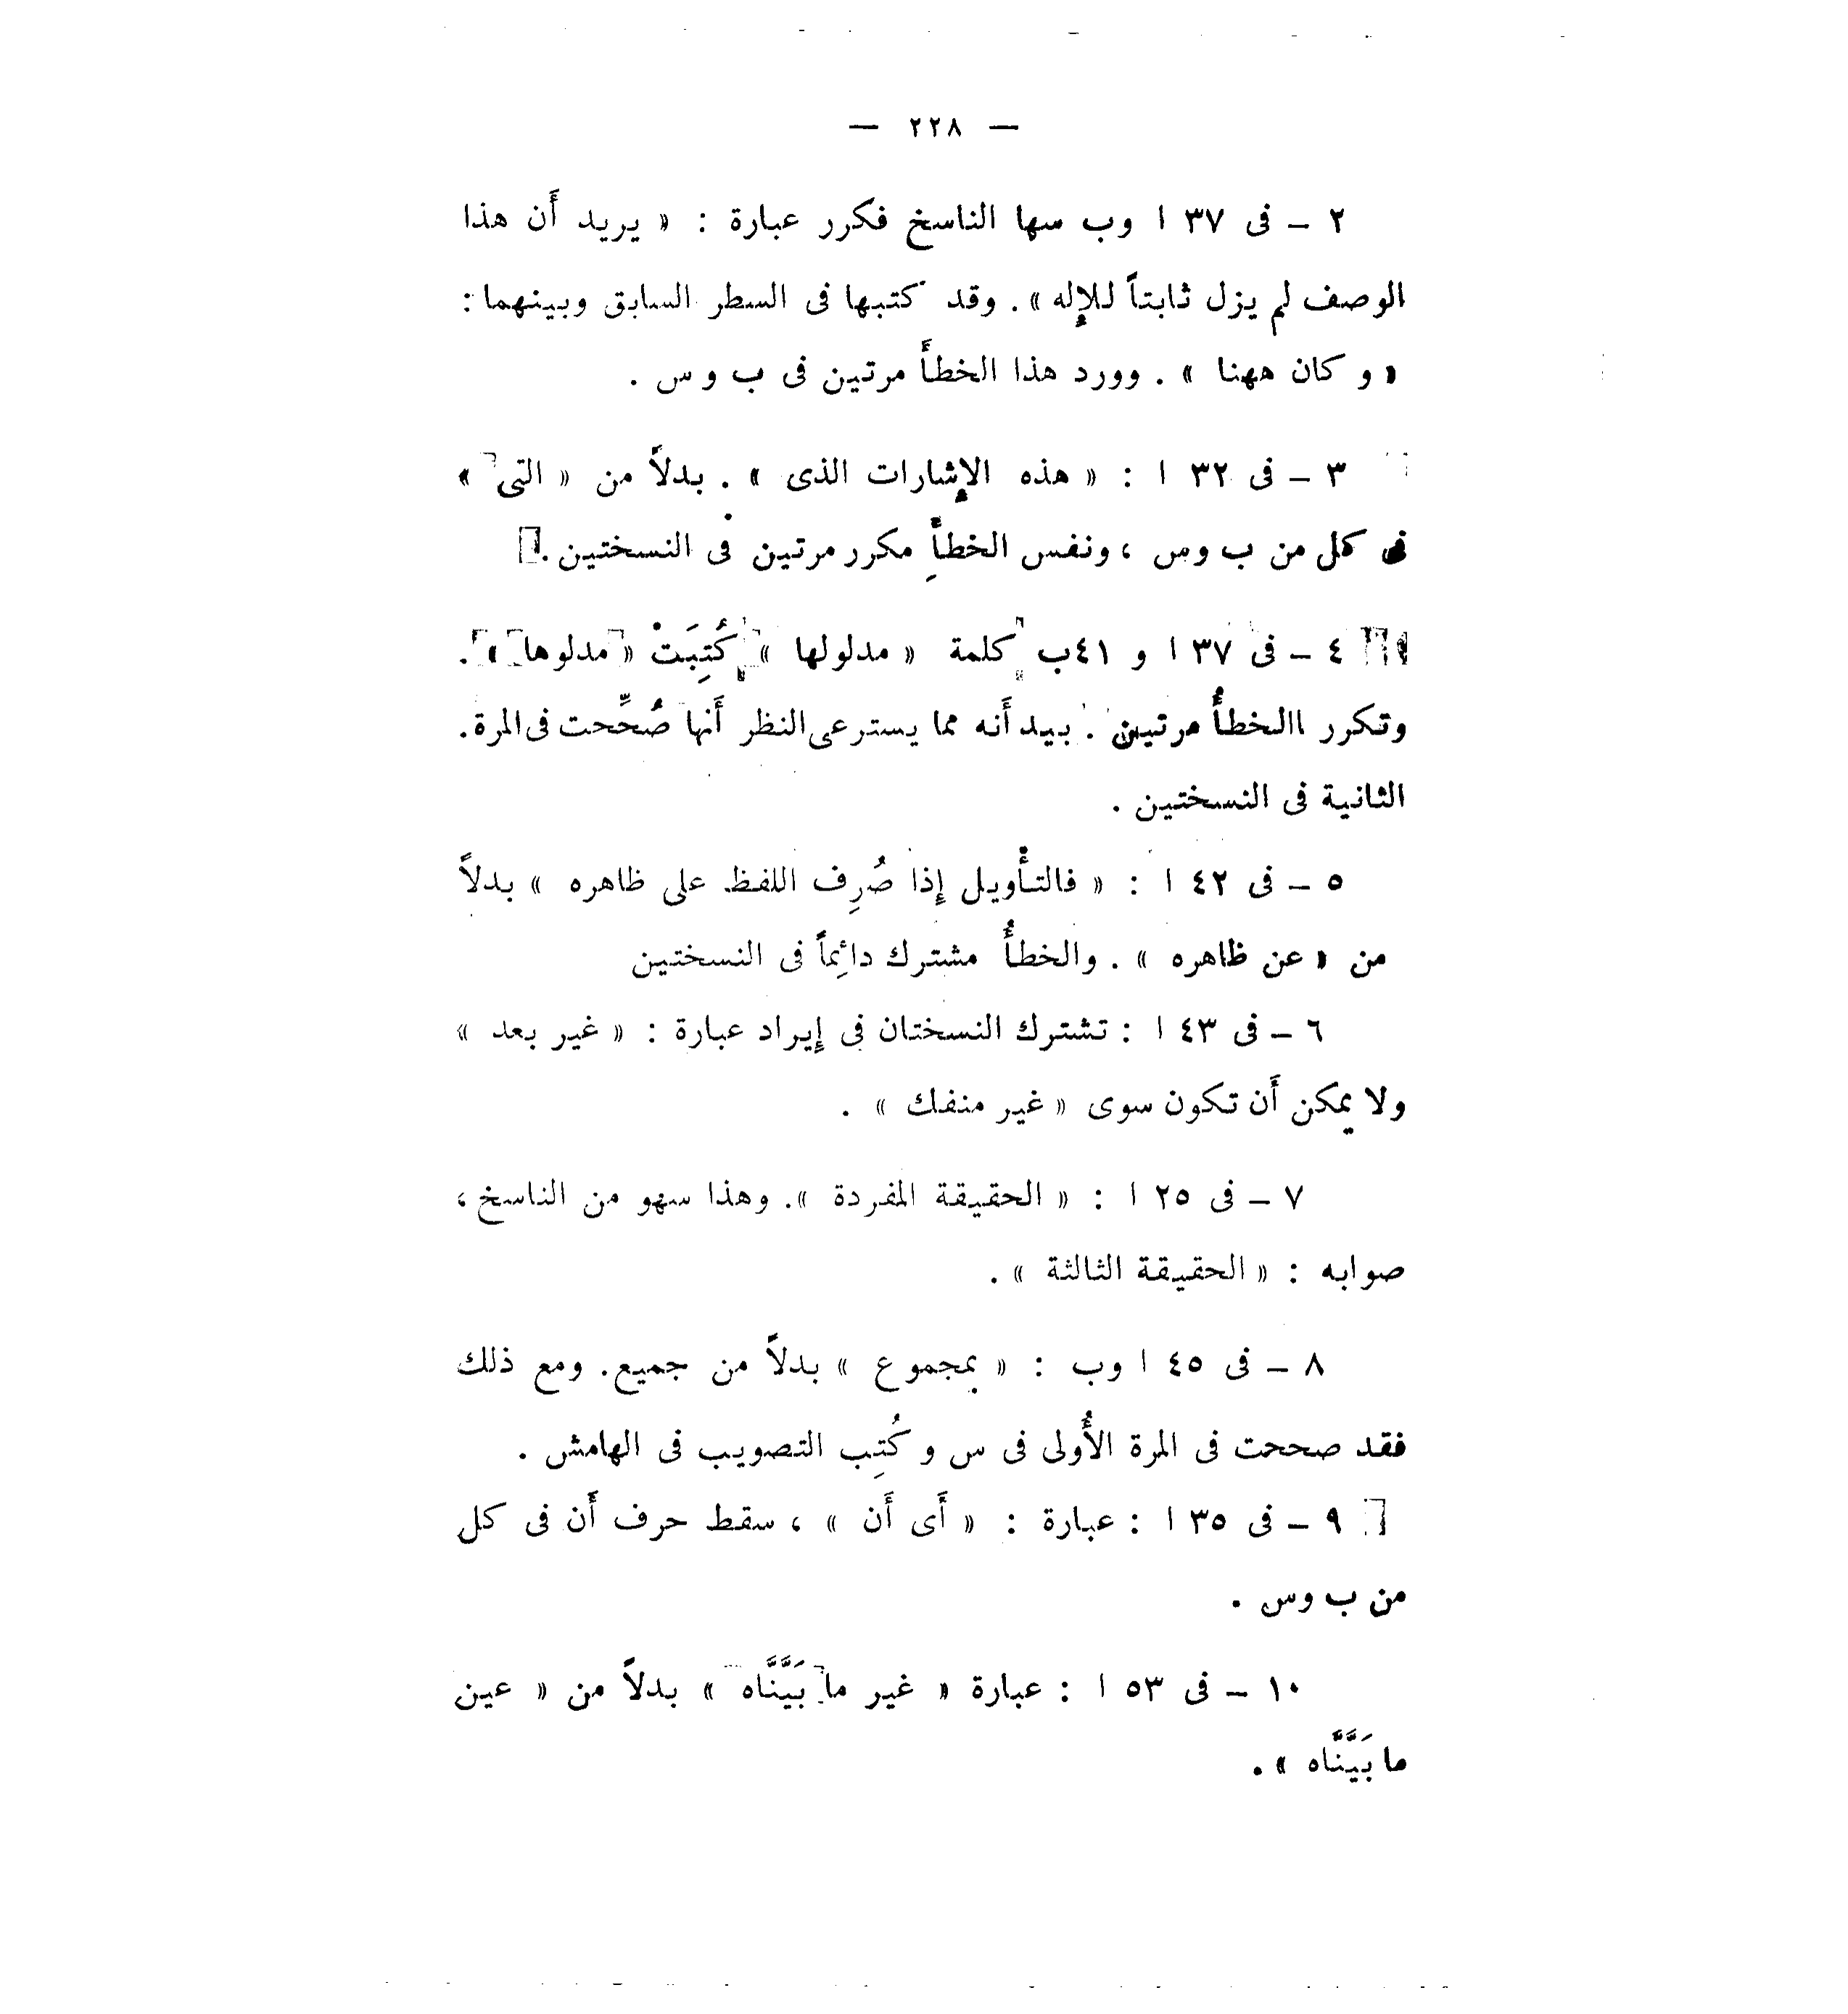 — ٢٢٨ —
٢ – فى ٣٧ ا وب سها الناسخ فكرر عبارة : « يريد أَن هذا
الوصف لم يزل ثابتاً للإِله » . وقد كتبها فى السطر السابق وبينهما :
« و كان ههنا » . وورد هذا الخطأَ مرتين فى ب و س .
٣ – فى ٣٢ ا : « هذه الإِشارات الذى » . بدلاً من « التى »
فى كل من ب وس ، ونفس الخطأَِ مكرر مرتين فى النسختين .
٤ – فى ٣٧ ا و ٤١ب كلمة « مدلولها » كُتِبَتْ « مدلوها » .
وتكرر االخطأُ مرتين . بيد أَنه مما يسترعى النظر أَنها صُحِّحت فى المرة .
الثانية فى النسختين .
٥ – فى ٤٢ ا : « فالتأْويل إِذا صُرِف اللفظ على ظاهره » بدلاً
من « عن ظاهره » . والخطأُ مشترك دائِماً فى النسختين
٦ – فى ٤٣ ا : تشترك النسختان فى إِيراد عبارة : « غير بعد »
ولا يمكن أَن تكون سوى « غير منفك » .
٧ – فى ٢٥ ا : « الحقيقة المفردة » . وهذا سهو من الناسخ ،
صوابه : « الحقيقة الثالثة » .
٨ – فى ٤٥ ا وب : « بمجموع » بدلاً من جميع . ومع ذلك
فقد صححت فى المرة الأُولى فى س و كُتِب التصويب فى الهامش .
٩ – فى ٣٥ ا : عبارة : « أَى أَن » ، سقط حرف أَن فى كل
من ب وس .
١٠ – فى ٥٣ ا : عبارة « غير ما بَيَّنَّاه » بدلاً من « عين
ما بَيَّنَّاه » .